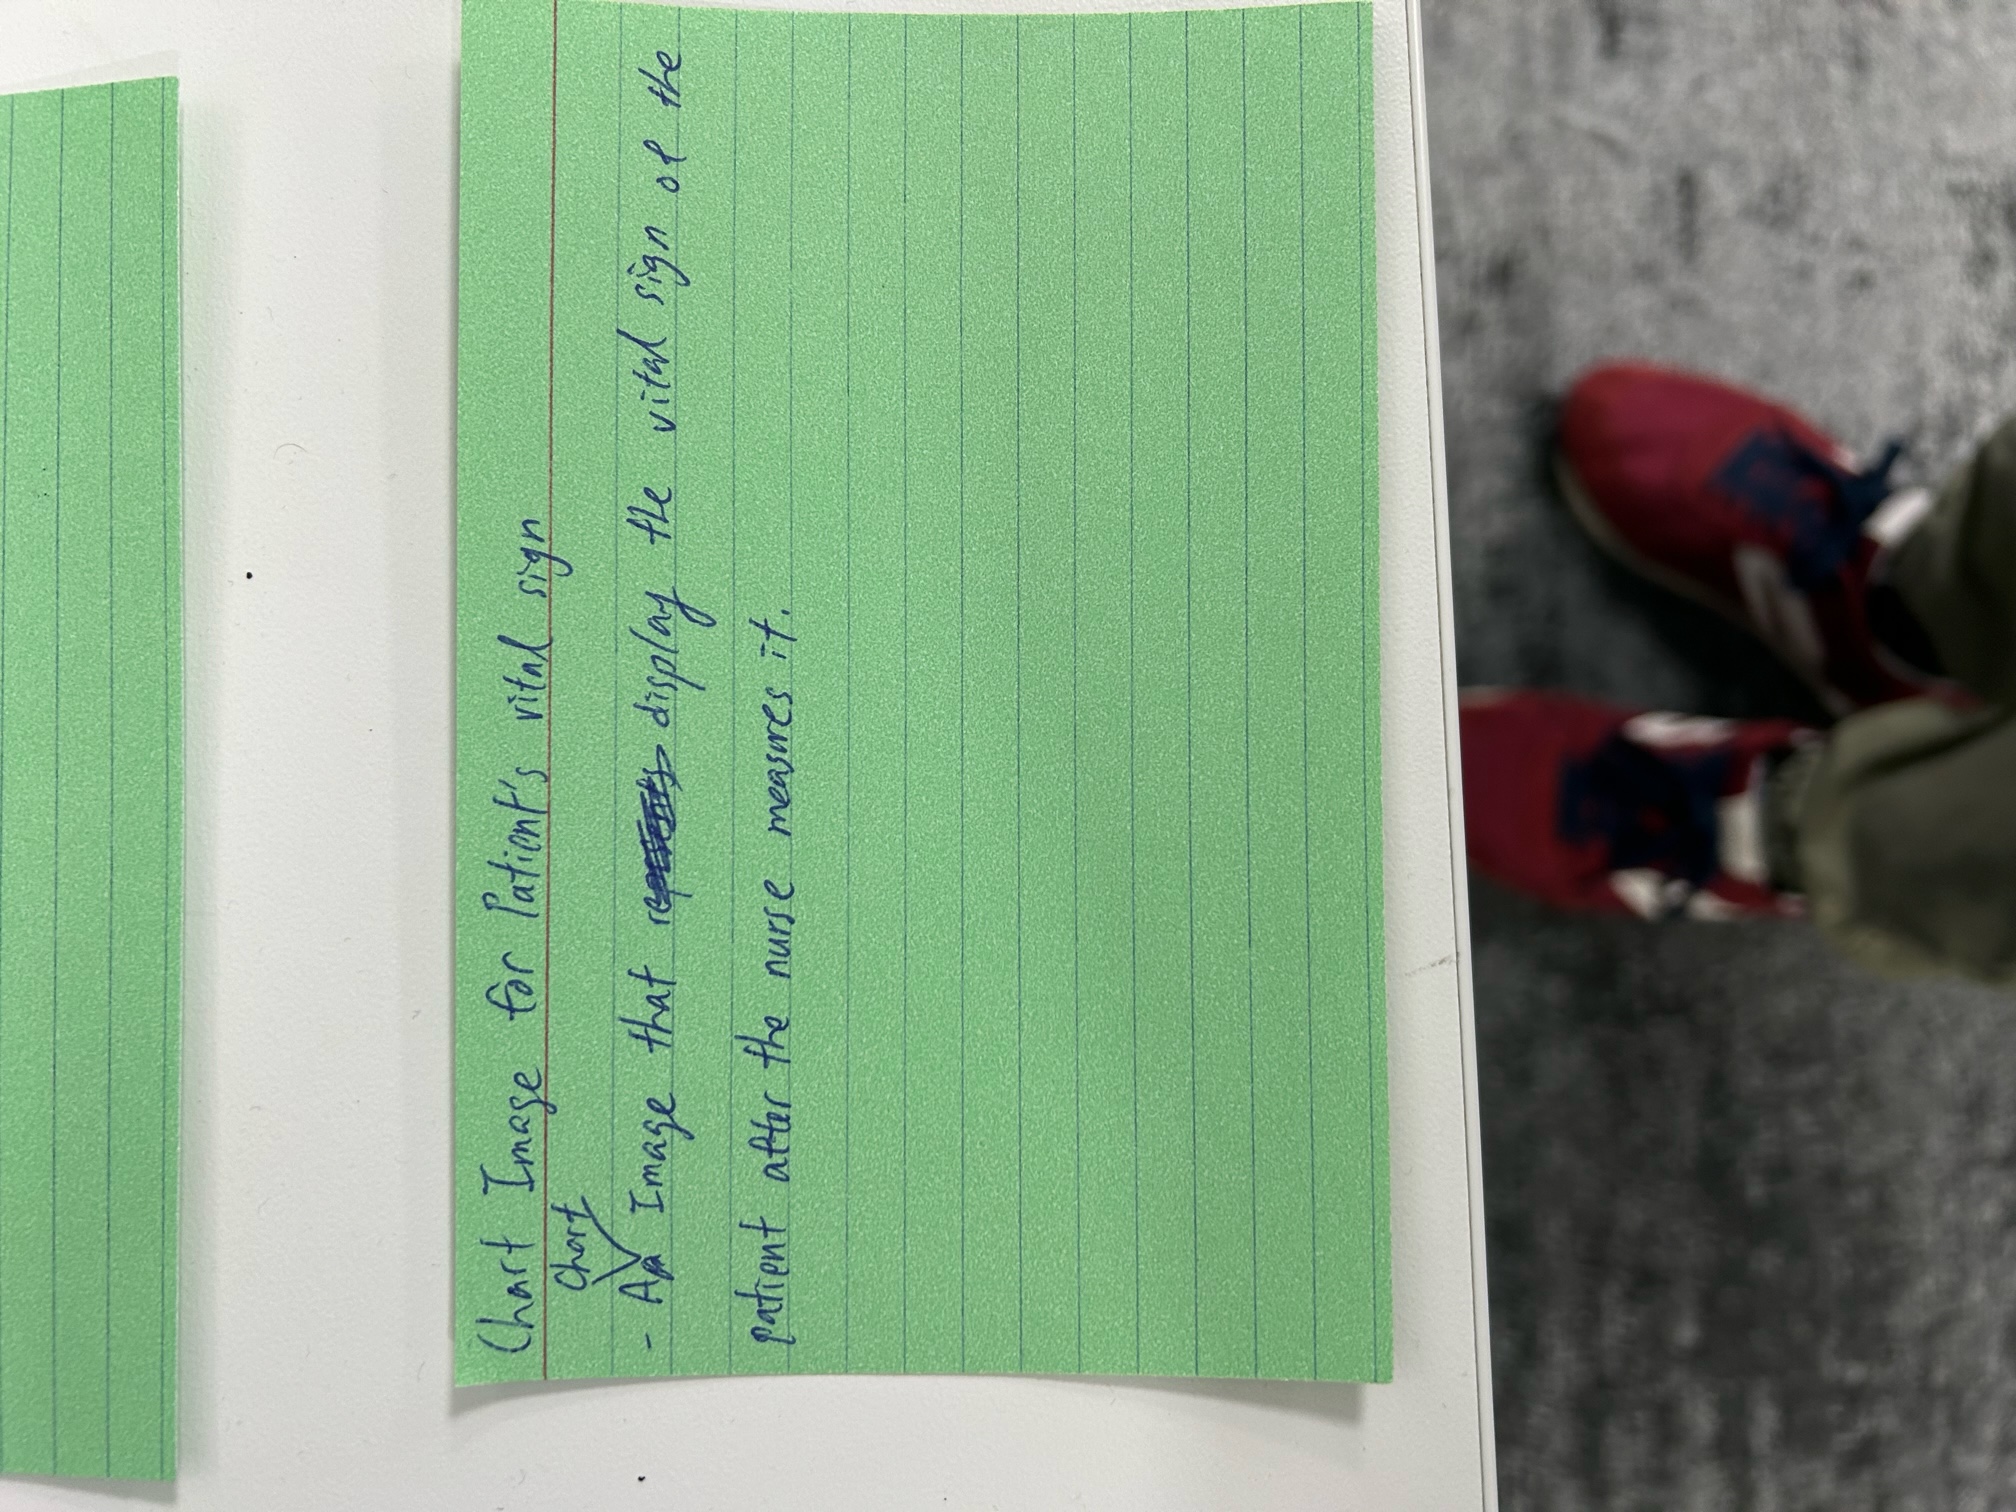 Chart Image for Patient's vital sign
Chart
- A Image that display the vital sign of the
patient after the nurse measures it.